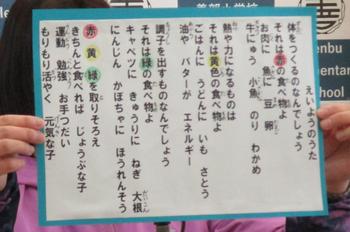 えいようのうた
体をつくるのなんでしょう
それは赤の食べ物よ
お肉に 魚に 豆 卵
牛にゅう 小魚 のり わかめ
熱や力になるものは
それは黄色の食べ物よ
ごはんに うどんに いも さとう
油や バターが エネルギー
調子を出すものなんでしょう
それは緑の食べ物よ
キャベツに きゅうりに ねぎ 大根
にんじん かぼちゃに ほうれんそう
赤 黄 緑を取りそろえ
きちんと食べれば じょうぶな子
運動 勉強 お手つだい
もりもり活やく 元気な子